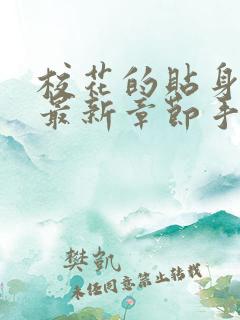 校花的贴身
最新章节手
樊凯
未经同意禁止转载